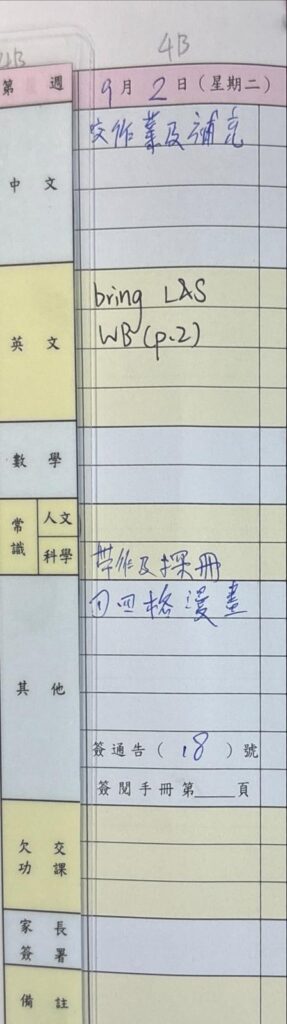 4B
4B
第 週 9月2日(星期二)
中文 交作業及補充
英文 bring L&S
WB (p.2)
數學
常識 人文
科學 帶作及探冊
其他 ①四格漫畫
簽通告( 18 )號
簽閱手冊第____頁
欠交功課
家長簽署
備註